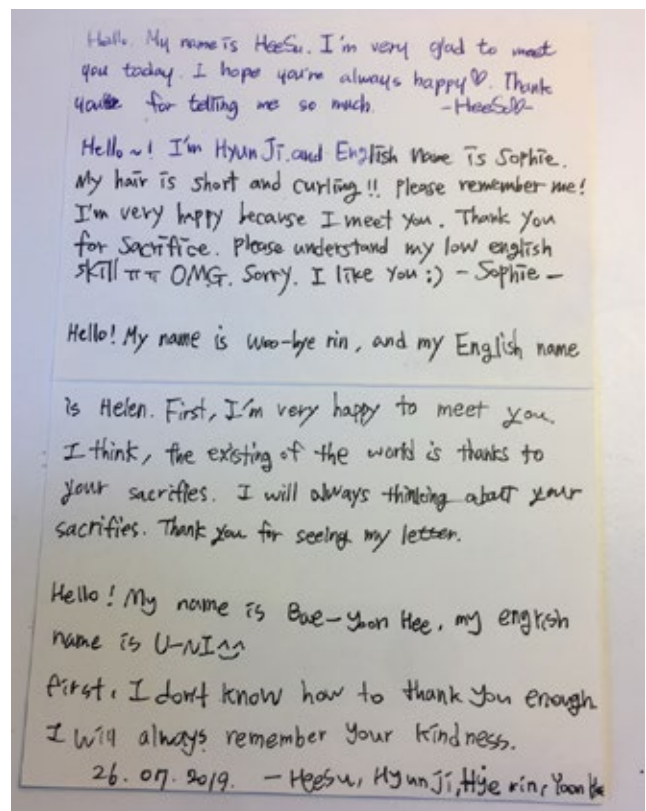 Hello. My name is HeeSu. I'm very glad to meet
you today. I hope you're always happy♡. Thank
for telling me so much. -HeeSu♡-
Hello~! I'm HyunJi.and English Name is Sophie.
My hair is short and curling!! Please remember me!
I'm very happy because I meet you. Thank you
for Sacrifice. Please understand my low english
skill ㅠㅠ OMG. Sorry. I like You :) - Sophie -
Hello! My name is Woo-hye rin, and my English name
is Helen. First, I'm very happy to meet you.
I think, the existing of the world is thanks to
your sacrifies. I will always thinking about your
sacrifies. Thank you for seeing my letter.
Hello! My name is Bae-Yoon Hee, my english
name is U-NI^^
first, I don't know how to thank you enough
I will always remember your kindness.
26. 07. 2019. - Heesu, HyunJi, Hye rin, Yoon Hee